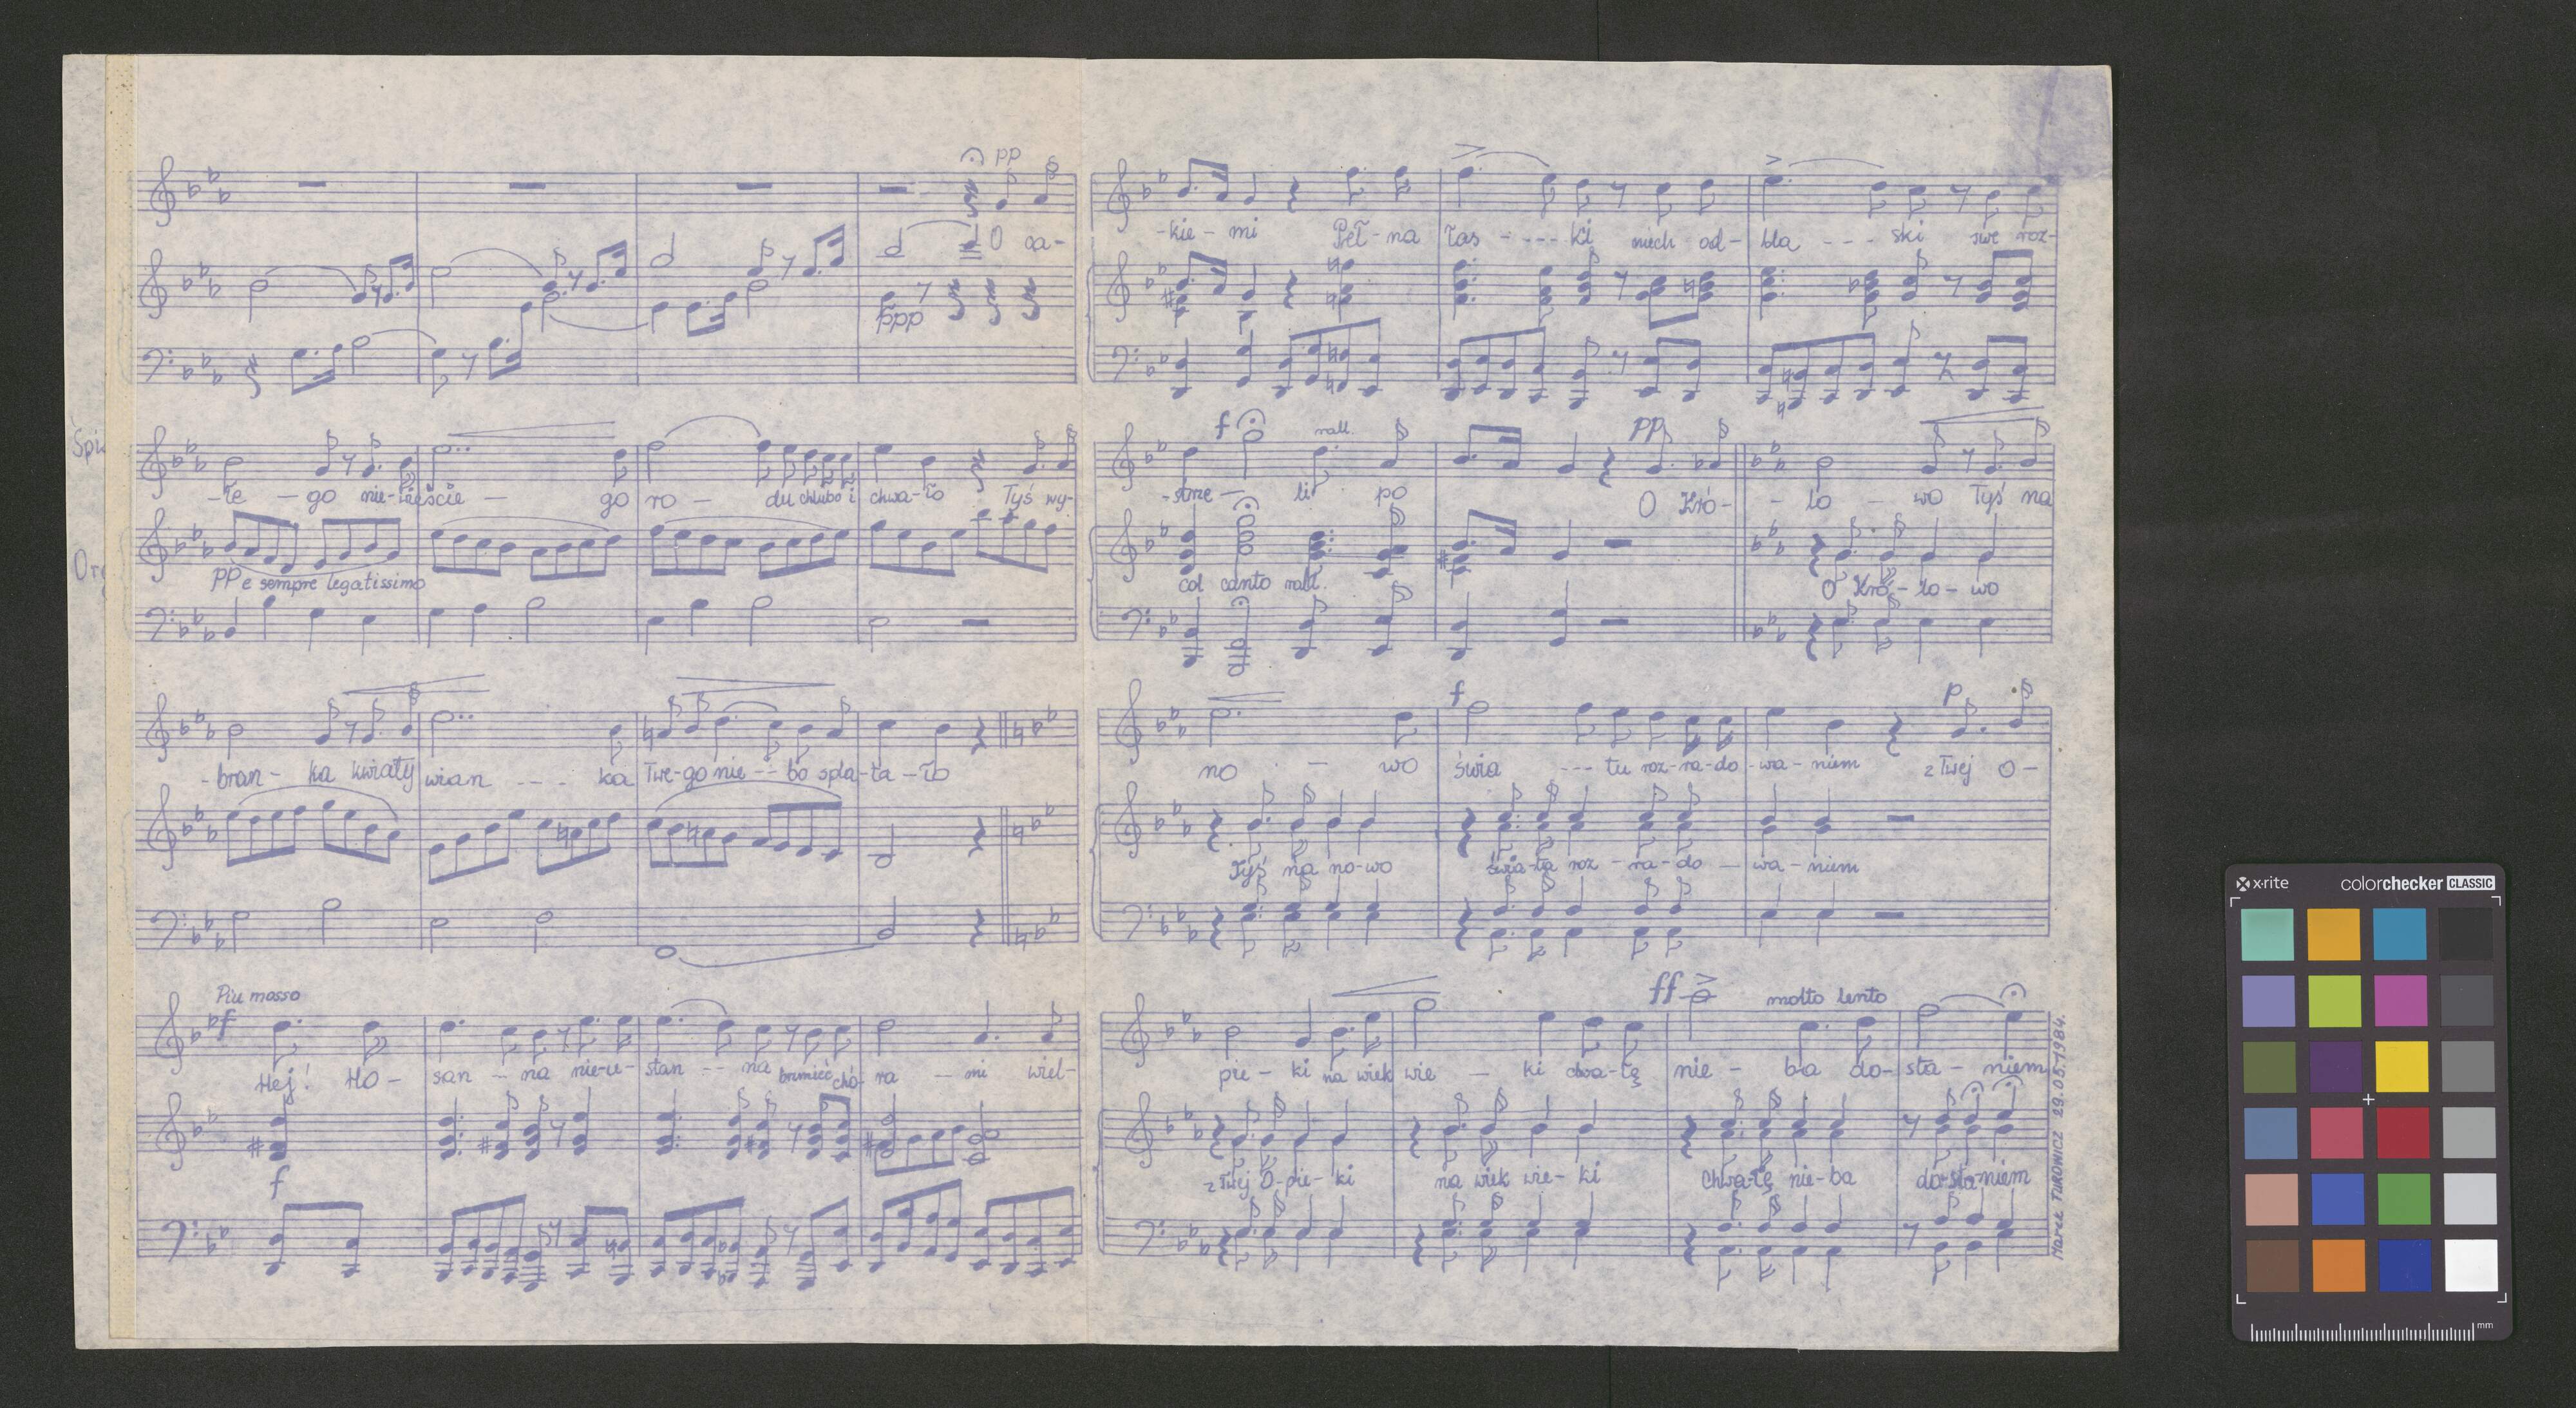 pp
O ca-
ppp
Śpi
-łe - go nie- - go ro - du chlubo i chwa-ło Tyś wy-
Org
pp e sempre legatissimo
-bran- ka kwiaty wian - - - ka Twe-go nie - - bo spla-ta-ło
Piu mosso
f
Hej! Ho- san - na nie-u- stan - - na brzmieć chó- ra - mi wiel-
f
-kie - mi Peł-na łas - - - - ki niech od- bla - - - ski swe roz-
f rall. pp
-strze - li po O Kró- - lo - wo Tyś na
col canto rall. O Kró-lo-wo
f p
no - wo świa - - - tu roz-ra-do -wa-niem z Twej O-
Tyś na no-wo świa-ta roz-ra-do - wa-niem
ff molto lento
pie - ki na wiek wie - ki chwa-łę nie - ba do- sta - niem
z Twej O-pie-ki na wiek wie-ki Chwa-łę nie-ba do-sta-niem
Marek TURONICZ 29.05.1984.
x-rite colorchecker CLASSIC
mm